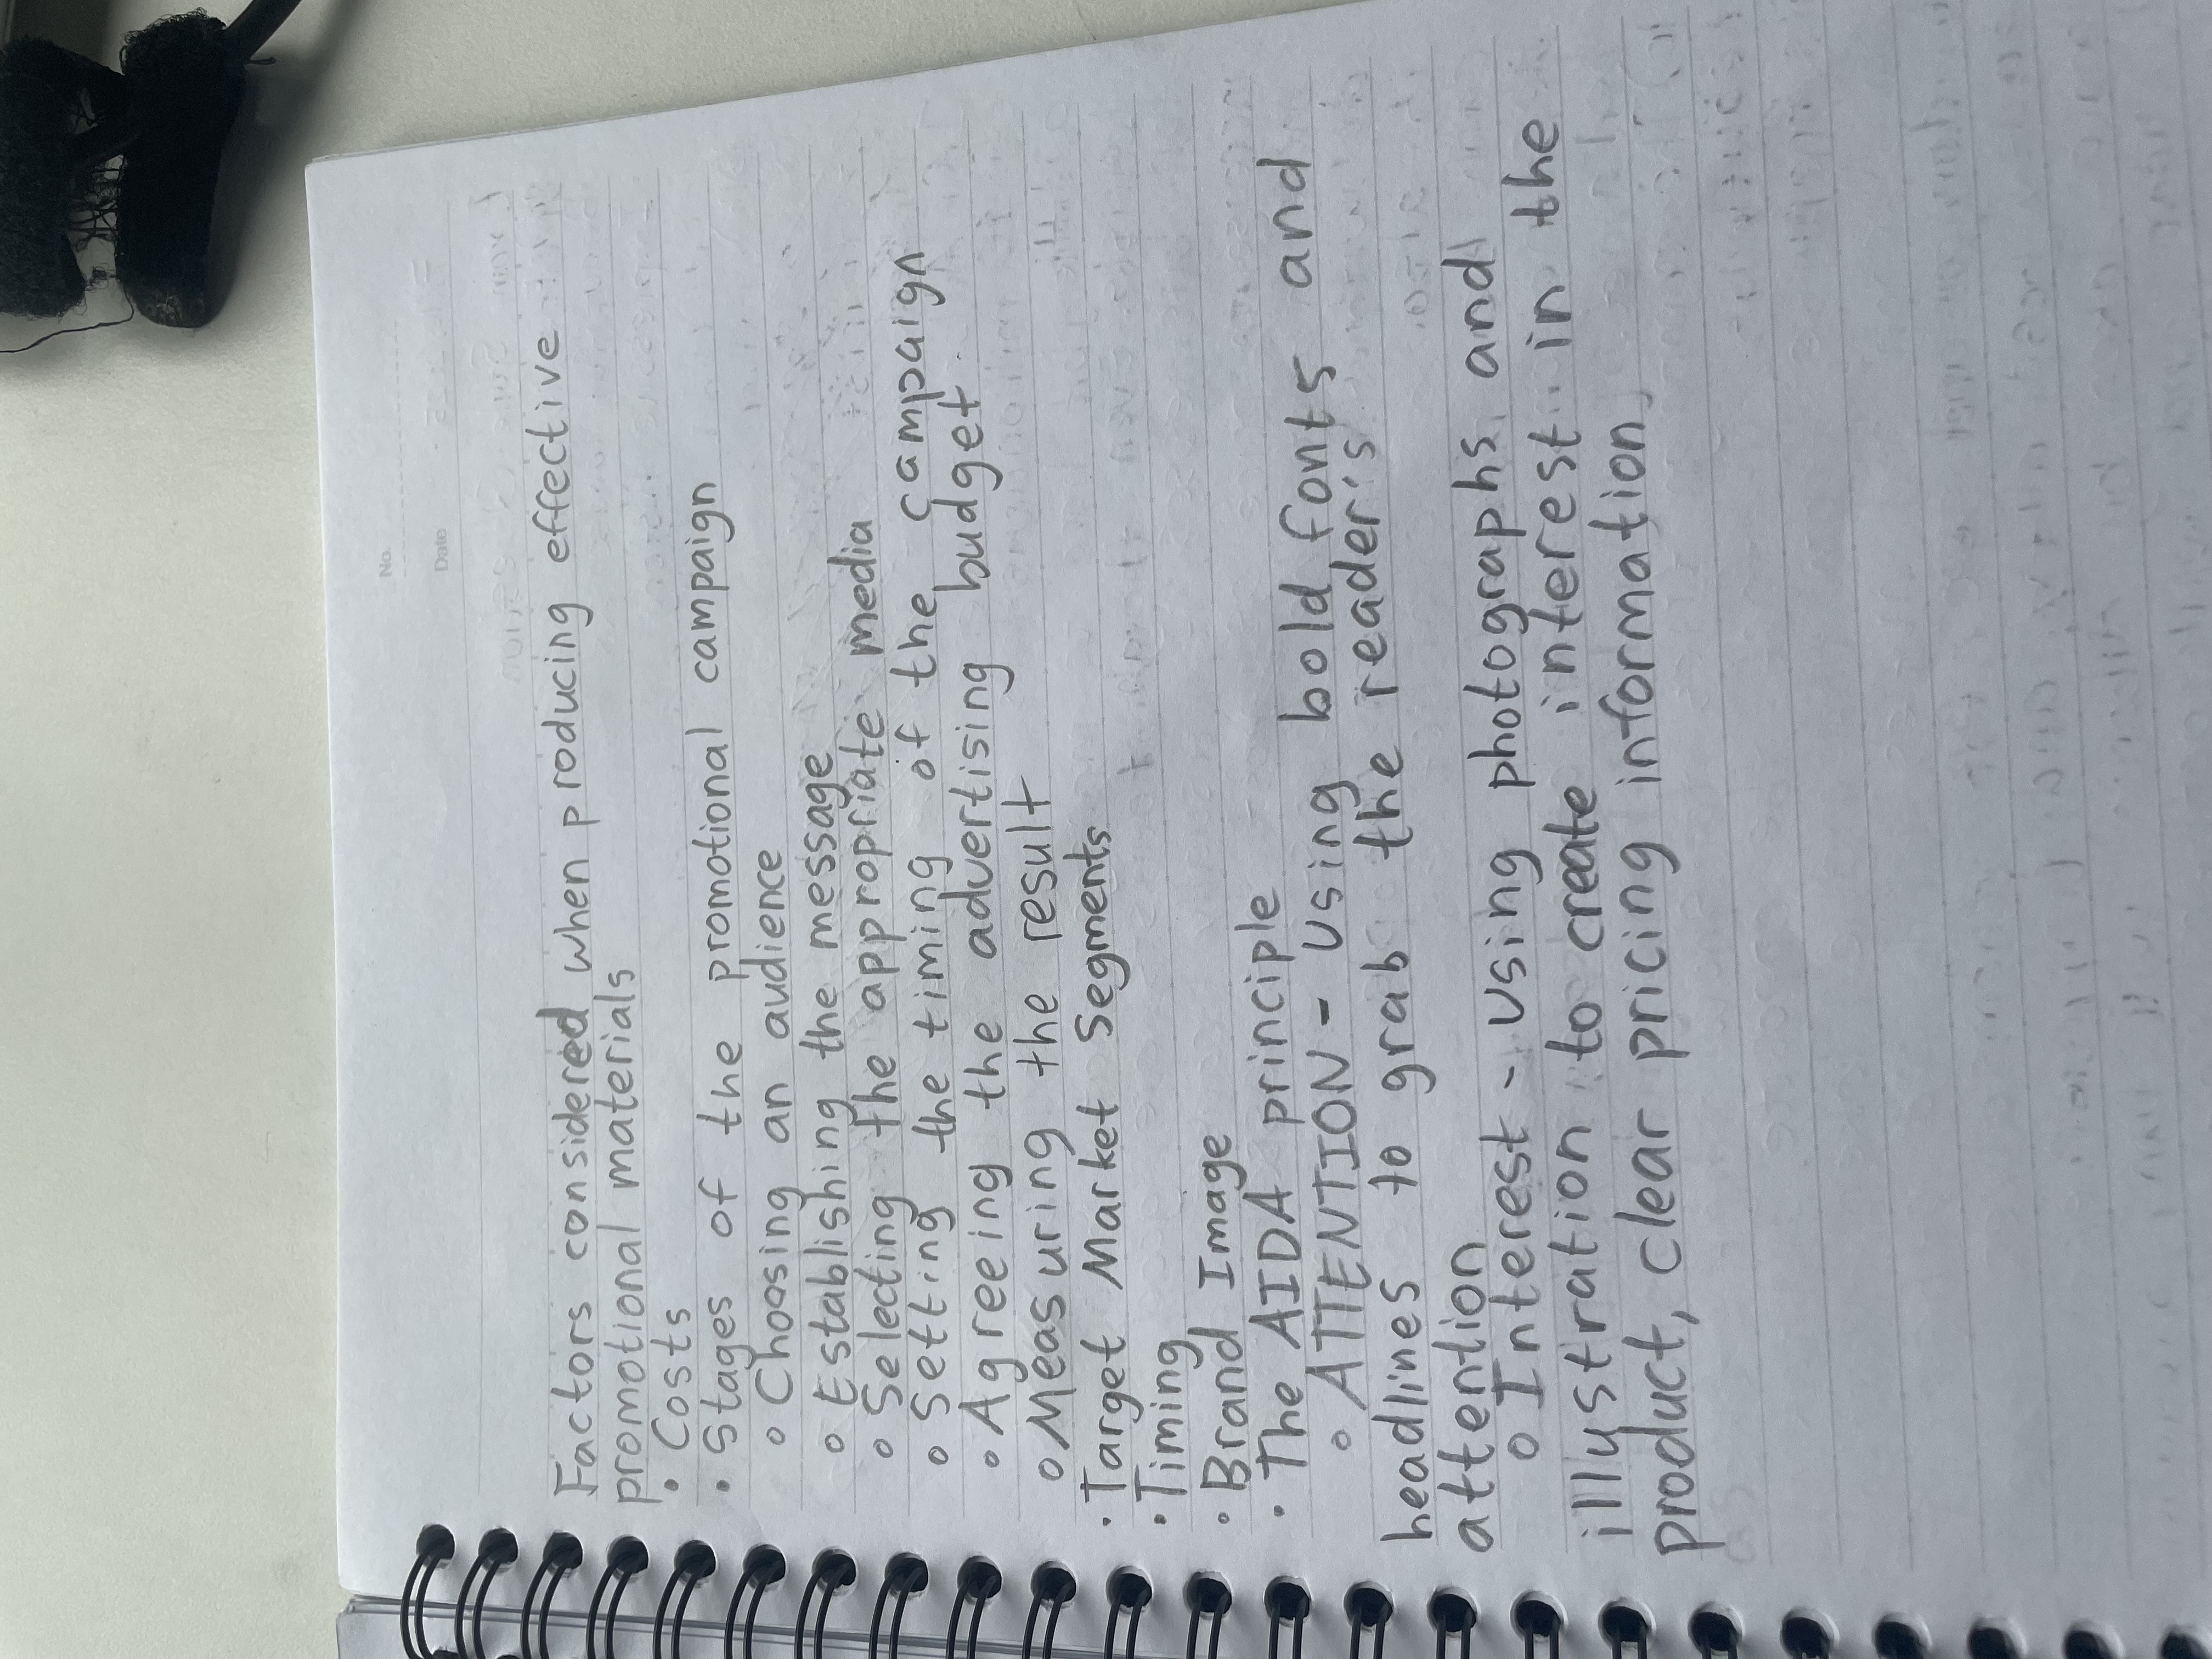 No.
Date
Factors considered when producing effective
promotional materials
• Costs
• Stages of the promotional campaign
o Choosing an audience
o Establishing the message
o Selecting the appropriate media
o Setting the timing of the campaign
o Agreeing the advertising budget
o Measuring the result
• Target Market Segments
• Timing
• Brand Image
• The AIDA principle
o ATTENTION - using bold fonts and
headlines to grab the reader's
attention
o Interest - using photographs and
illustration to create interest in the
product, clear pricing information